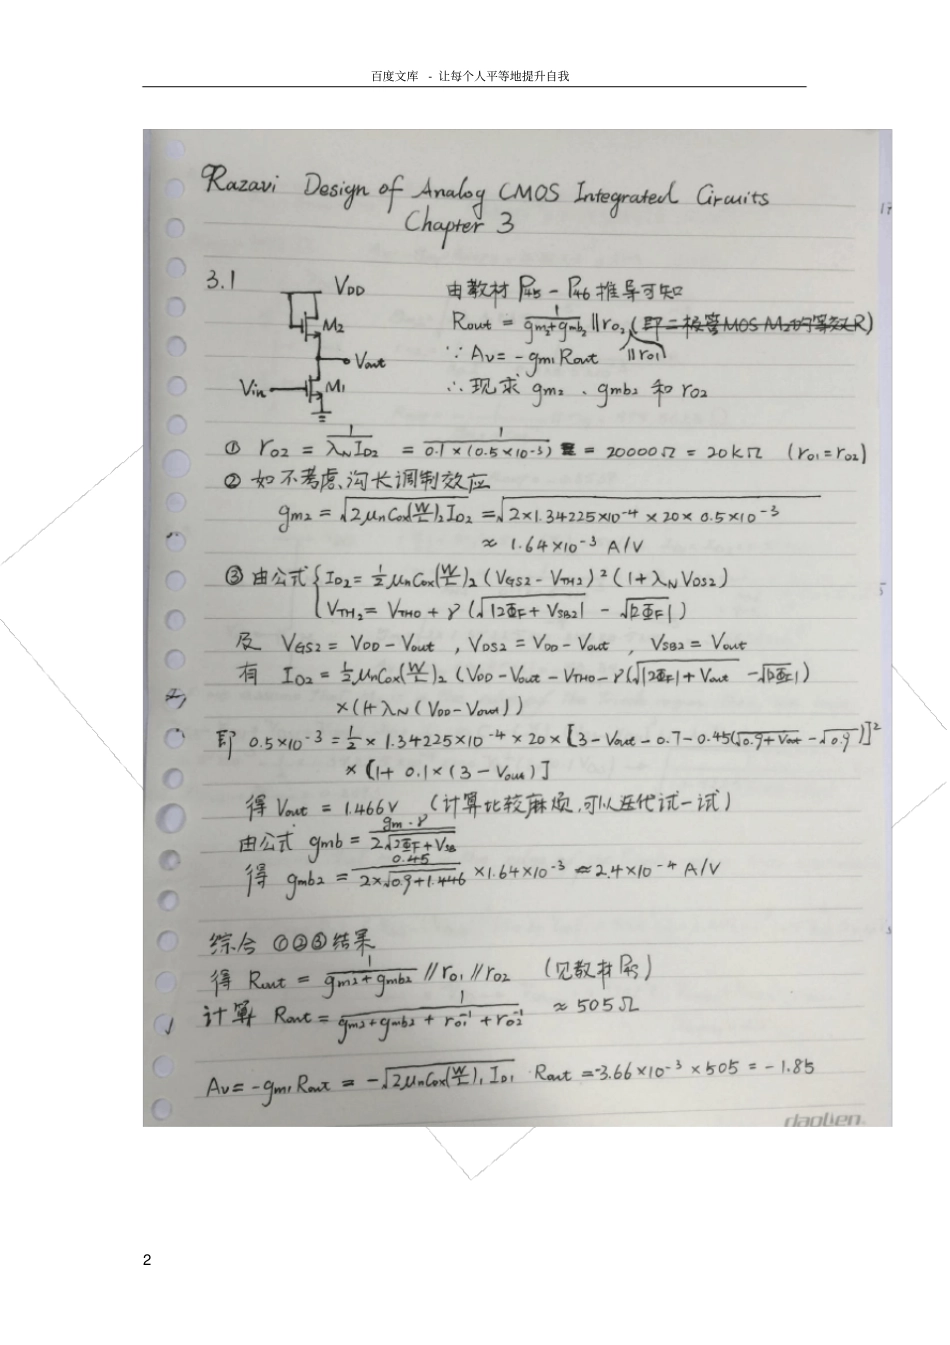 百度文库 - 让每个人平等地提升自我
Razavi Design of Analog CMOS Integrated Circuits
Chapter 3
3.1
VDD
M2
Vout
Vin
M1
由教材 P45 - P46 推导可知
Rout = 1/(gm2+gmb2) ∥ ro2 ∥ro1 (即二极管MOS M2的等效R)
∵ Av = -gm1 Rout
∴ 现求 gm2 、gmb2 和 ro2
① ro2 = 1/(λN ID2) = 1/(0.1×(0.5×10-3)) = 20000Ω = 20kΩ (ro1=ro2)
② 如不考虑沟长调制效应
gm2 = √(2μnCox(W/L)2 ID2) = √(2×1.34225×10-4 × 20× 0.5×10-3)
≈ 1.64×10-3 A/V
③ 由公式 { ID2 = ½ μnCox(W/L)2 (VGS2 - VTH2)² (1+λN VDS2)
VTH2 = VTH0 + γ (√|2ΦF + VSB2| - √|2ΦF|)
及 VGS2 = VDD - Vout , VDS2 = VDD - Vout , VSB2 = Vout
有 ID2 = ½ μnCox(W/L)2 (VDD - Vout - VTH0 - γ(√|2ΦF|+ Vout - √|2ΦF|)
×(1+λN (VDD - Vout))
即 0.5×10-3 = ½ × 1.34225×10-4 × 20 × [3 - Vout - 0.7 - 0.45(√0.9+Vout - √0.9)]²
× [1+ 0.1 × (3 - Vout)]
得 Vout = 1.466V (计算比较麻烦,可以迭代试一试)
由公式 gmb = gm·γ/(2√(2ΦF + VSB))
得 gmb2 = 0.45/(2×√(0.9+1.446)) ×1.64×10-3 ≈ 2.4×10-4 A/V
综合 ①②③ 结果
得 Rout = 1/(gm2+gmb2) // ro1 // ro2 (见教材)
计算 Rout = 1/(gm2+gmb2 + ro1-1 + ro2-1) ≈ 505Ω
Av = -gm1 Rout = -√(2μnCox(W/L)1 ID1) · Rout = -3.66×10-3 × 505 = -1.85
daolien
2